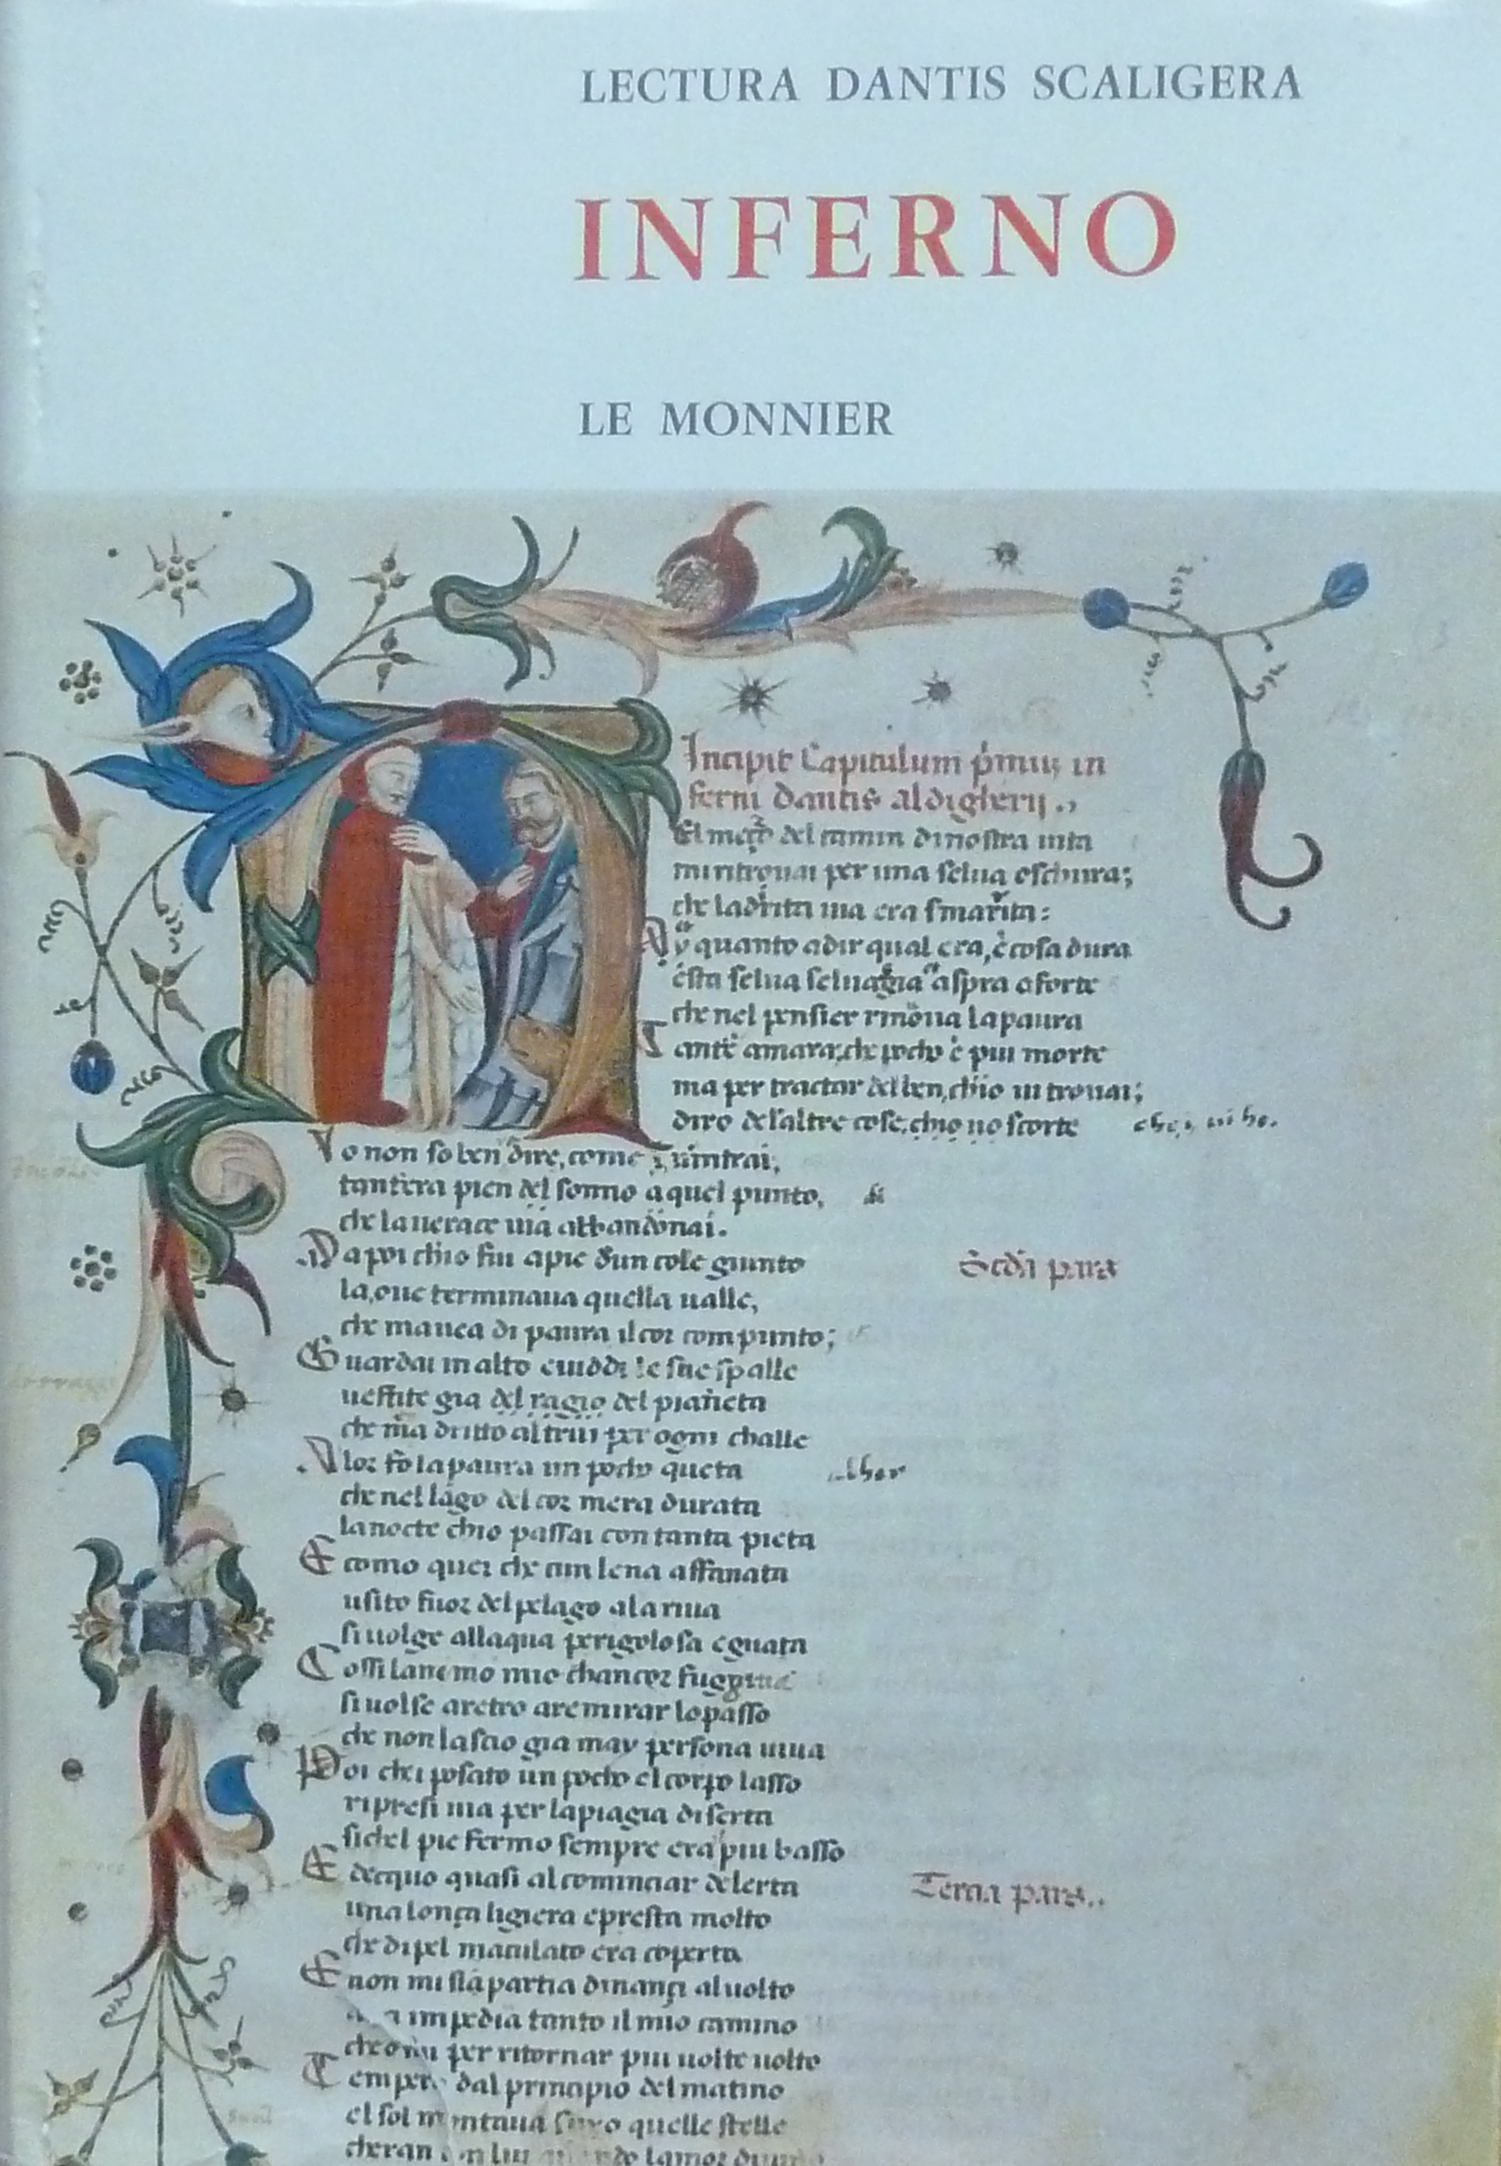 LECTURA DANTIS SCALIGERA
INFERNO
LE MONNIER
Incipit Capitulum pͥmuꝫ in
ferni Dantis aldigherij .,
El meço del camin di nostra uita
mi ritrouai per una selua oschura;
che la drita uia era smarita:
Ay quanto adir qual era, è cosa dura
esta selua seluagia aspra e forte
che nel pensier rinoua la paura
Tantè amara, che pocho è piu morte
ma per tractar del ben, chio ui trouai;
diro de laltre cose, chio no scorte
Io non so ben dire, come uintrai;
tantera pien del sonno a quel punto,
che la uerace uia abbandonai.
Da poi chio fui apie dun cole giunto
la, oue terminaua quella ualle,
che mauea di paura il cor compunto;
Guardai in alto e uiddi le sue spalle
uestite gia del ragio del pianeta
che mena dritto altrui per ogni challe
Alor fo la paura un pocho queta
che nel lago del cor mera durata
la nocte chio passai con tanta pieta
E como quei che cun lena affanata
usito fuor del pelago ala riua
si uolge allaqua perigolosa e guata
Cossi lanemo mio chancor
si uolse aretro a remirar lo passo
che non lascio gia may persona uiua
Poi chei posato un pocho el corpo lasso
ripresi uia per la piagia diserta
si chel pie fermo sempre era piu basso
E decquo quasi al cominciar de lerta
una lonça ligiera e presta molto
che di pel maculato era coperta
E non mi sia partia dinançi al uolto
impedia tanto il mio camino
per ritornar piu uolte uolto
Temper dal principio del matino
el sol montaua suso quelle stelle
cheran lamor
Scda pars
Tercia pars..